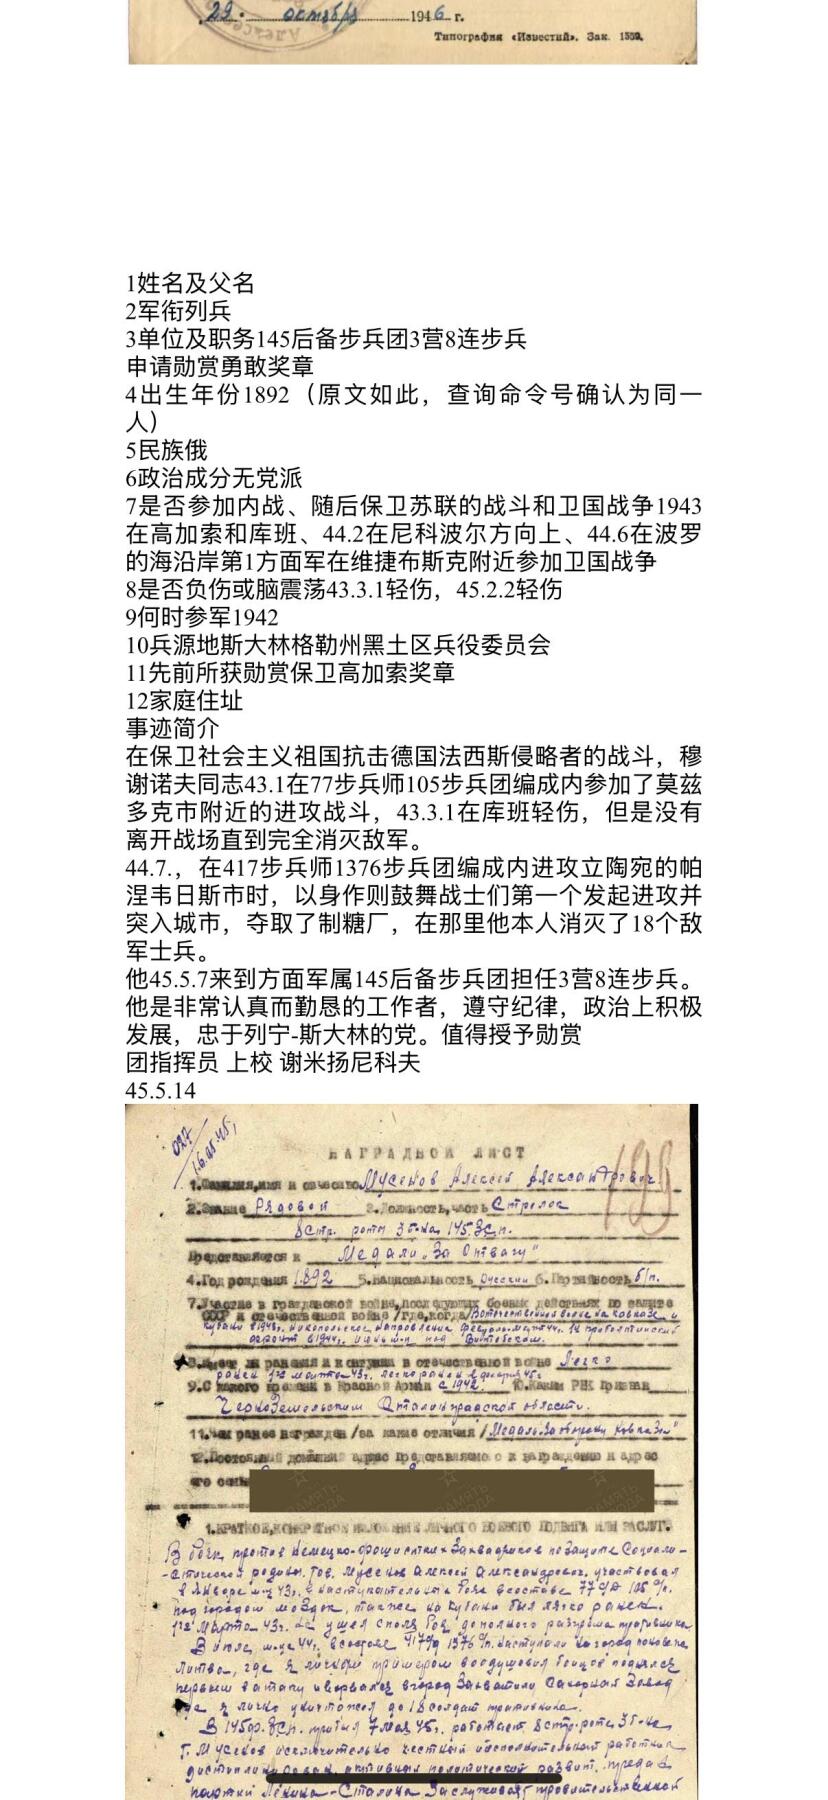 22 октября 1946 г.
Типография «Известий». Зак. 1559.
1姓名及父名
2军衔列兵
3单位及职务145后备步兵团3营8连步兵
申请勋赏勇敢奖章
4出生年份1892（原文如此，查询命令号确认为同一
人）
5民族俄
6政治成分无党派
7是否参加内战、随后保卫苏联的战斗和卫国战争1943
在高加索和库班、44.2在尼科波尔方向上、44.6在波罗
的海沿岸第1方面军在维捷布斯克附近参加卫国战争
8是否负伤或脑震荡43.3.1轻伤，45.2.2轻伤
9何时参军1942
10兵源地斯大林格勒州黑土区兵役委员会
11先前所获勋赏保卫高加索奖章
12家庭住址
事迹简介
在保卫社会主义祖国抗击德国法西斯侵略者的战斗，穆
谢诺夫同志43.1在77步兵师105步兵团编成内参加了莫兹
多克市附近的进攻战斗，43.3.1在库班轻伤，但是没有
离开战场直到完全消灭敌军。
44.7.，在417步兵师1376步兵团编成内进攻立陶宛的帕
涅韦日斯市时，以身作则鼓舞战士们第一个发起进攻并
突入城市，夺取了制糖厂，在那里他本人消灭了18个敌
军士兵。
他45.5.7来到方面军属145后备步兵团担任3营8连步兵。
他是非常认真而勤恳的工作者，遵守纪律，政治上积极
发展，忠于列宁-斯大林的党。值得授予勋赏
团指挥员 上校 谢米扬尼科夫
45.5.14
НАГРАДНОЙ ЛИСТ
1.Фамилия,имя и отчество Мусенов Алексей Александрович
2.Звание Рядовой 3.Должность,часть Стрелок
8 стр. роты 3 б-на, 145 ЗСп.
Представляется к Медали „За Отвагу"
4.Год рождения 1892 5.национальность Русский 6.Партийность б/п.
7.Участие в гражданской войне,последующих боевых действиях по защите
СССР и отечественной войне /где,когда/ Отечественной войне на Кавказе и
8.Имеет ли ранения и контузии в отечественной войне Легко
9.С какого времени в Красной Армии с 1942. 10.Каким РВК призван
Черноземельским Сталинградской области.
11.Чем ранее награжден /за какие отличия/ Медаль „За оборону Кавказа"
12.Постоянный домашний адрес представляемого к награждению и адрес
его семьи
1.КРАТКОЕ,КОНКРЕТНОЕ ИЗЛОЖЕНИЕ ЛИЧНОГО БОЕВОГО ПОДВИГА ИЛИ ЗАСЛУГ.
В боях против Немецко-фрошистких Захватчиков по защите Социали-
-стической родины. тов. Мусенов Алексей Александрович, участвовал
в Январе м-це 43г. в наступательных боях в составе 77 сд 105 сп.
под городом моздок, также на Кубани был легко ранен.
1го Марта 43г. не ушел с поля боя, до полного разгрома противника.
Литва, где я личным примером воодушевил бойцов поднялся
первым в атаку и ворвался в город Захватили Сахарный Завод
где я лично уничтожил до 18 солдат противника.
В 145ф.ЗСп. прибыл 7 Мая 45г. работает 8 стр. роте 3 б-на
т. Мусенов исключительно честный исполнительный работник
дисциплинирован, активная политический развит. предан
партии Ленина-Сталина Заслуживает правительственной